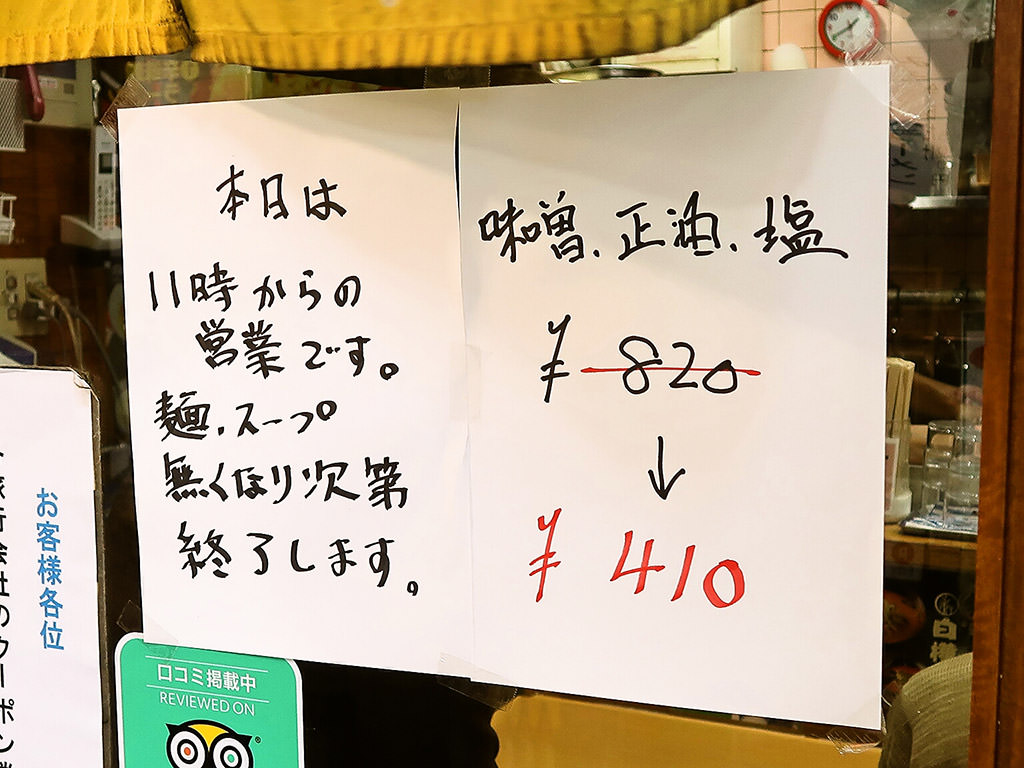 本日は
11時からの
営業です。
麺、スープ
無くなり次第
終了します。
味噌、正油、塩
¥820
↓
¥410
お客様各位
旅行会社のクーポン
口コミ掲載中
REVIEWED ON
白樺